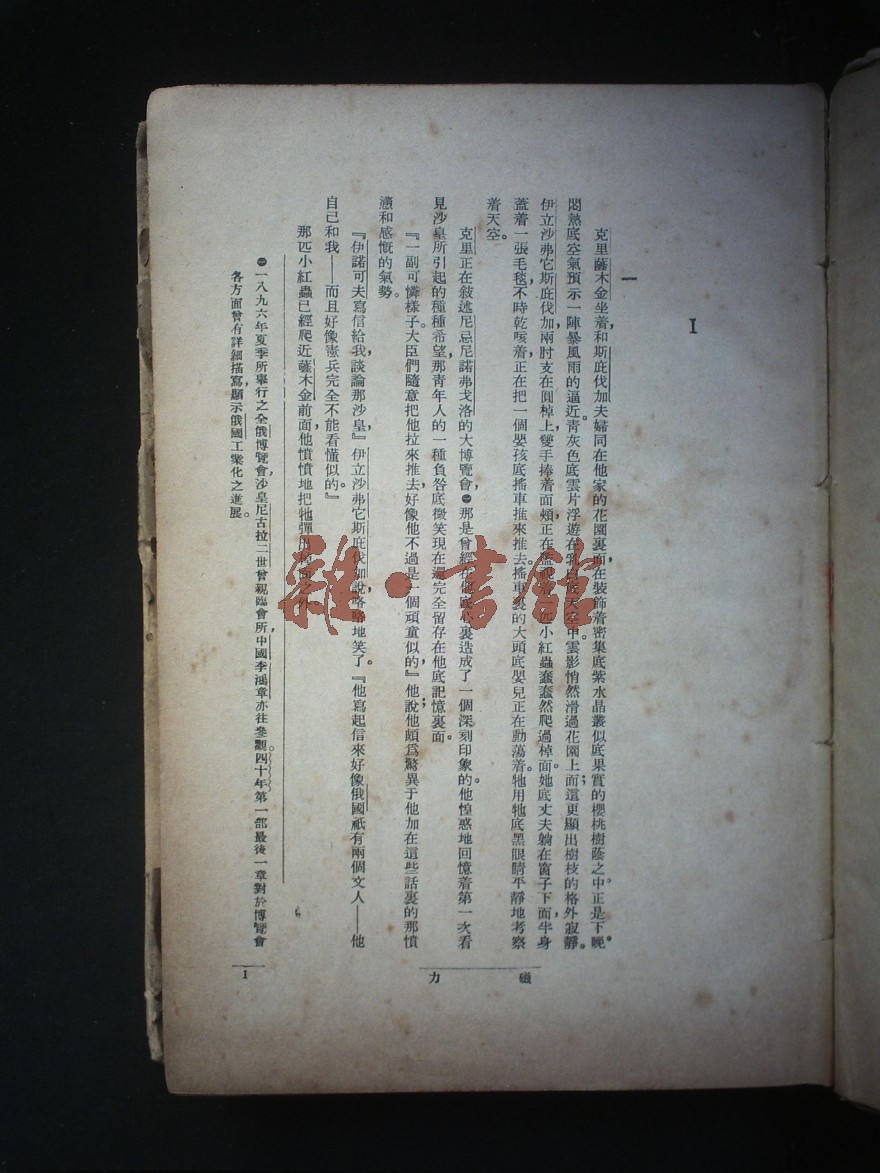 I
一
克里薩木金坐着，和斯庇伐加夫婦同在他家的花園裏面，在裝飾着密集底紫水晶叢似底果實的櫻桃樹蔭之中。正是下晚。
悶熱底空氣預示一陣暴風雨的逼近。青灰色底雲片浮遊在乳白底天空中。雲影悄然滑過花園上面；這更顯出樹枝的格外寂靜。
伊立沙弗它斯庇伐加，兩肘支在圓棹上，雙手捧着面頰，正在監視着一匹小紅蟲蠢蠢然爬過棹面。她底丈夫躺在窗子下面，半身
蓋着一張毛毯，不時乾咳着，正在把一個嬰孩底搖車推來推去。搖車裏的大頭底嬰兒正在動蕩着。牠用牠底黑眼睛平靜地考察
着天空。
克里正在敍述尼忌尼諾弗戈洛的大博覽會，㊀那是曾經在他底心裏造成了一個深刻印象的。他惶惑地回憶着第一次看
見沙皇所引起的種種希望，那青年人的一種負咎底微笑現在還完全留存在他底記憶裏面。
『一副可憐樣子。大臣們隨意把他拉來推去，好像他不過是一個頑童似的，』他說；他頗爲驚異于他加在這些話裏的那憤
懣和感慨的氣勢。
『伊諾可夫寫信給我，談論那沙皇，』伊立沙弗它斯庇伐加說，略略地笑了。『他寫起信來好像俄國祇有兩個文人——他
自己和我——而且好像憲兵完全不能看懂似的。』
那匹小紅蟲已經爬近薩木金前面，他憤憤地把牠彈出棹面之外。
㊀一八九六年夏季所舉行之全俄博覽會，沙皇尼古拉二世曾親臨會所，中國李鴻章亦往參觀。四十年第一部最後一章對於博覽會
各方面曾有詳細描寫，顯示俄國工業化之進展。
磁力
1
雜·書館